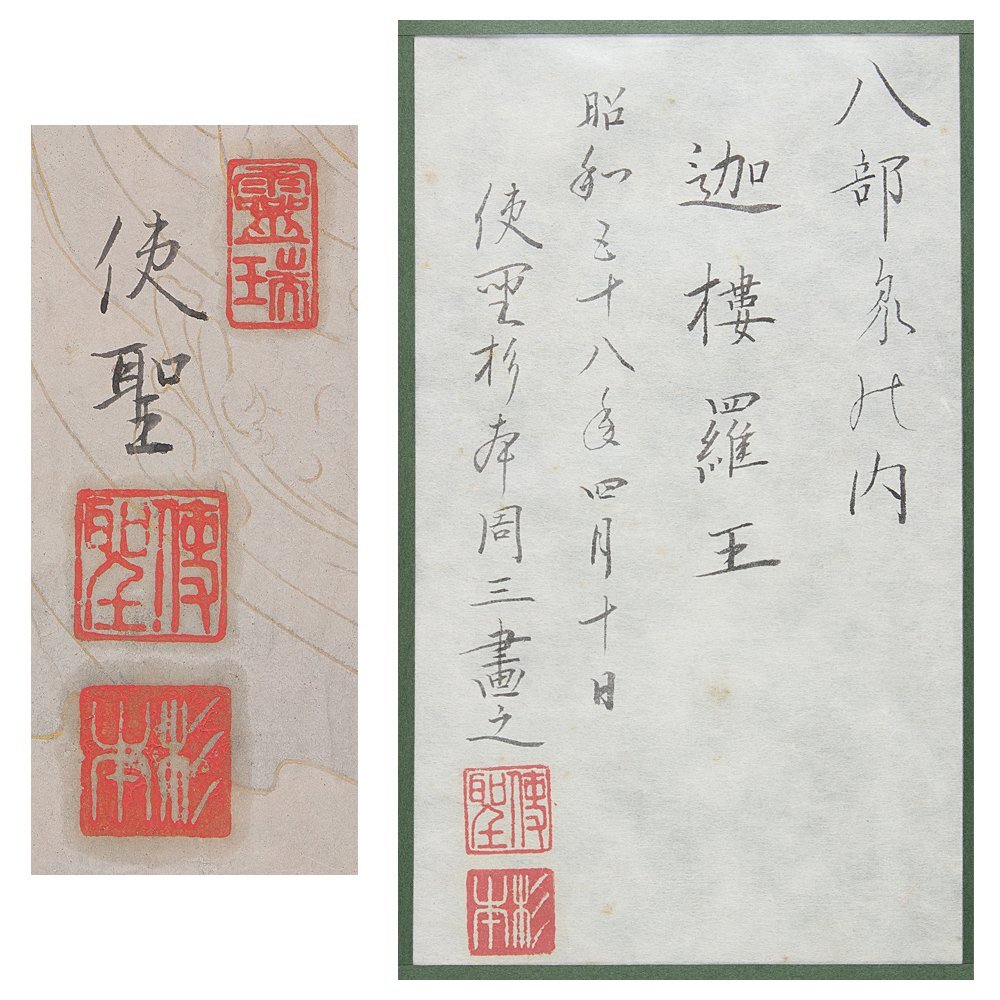 靈瑞
使聖
使聖
杉本
八部衆の内
迦樓羅王
昭和三十八年四月十日
使聖杉本周三畫之
使聖
杉本